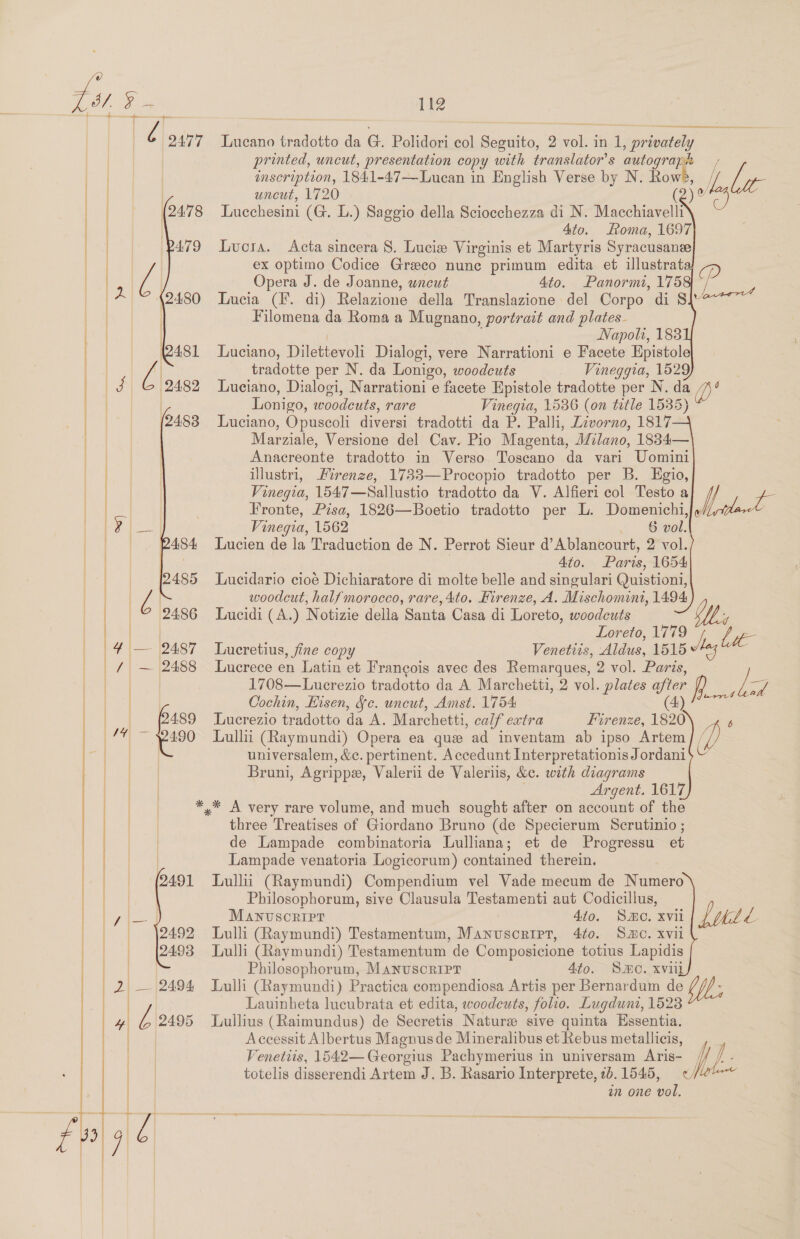 112
2477 Lucano tradotto da G. Polidori col Seguito, 2 vol. in 1, privately
printed, uncut, presentation copy with translator's autograph
inscription, 1841-47—Lucan in English Verse by N. Rowe,
uncut, 1720 (2)
2478 Lucchesini (G. L.) Saggio della Sciocchezza di N. Macchiavelli
4to. Roma, 1697
2479 Lucia. Acta sincera S. Luciæ Virginis et Martyris Syracusanæ
ex optimo Codice Græco nunc primum edita et illustrata
Opera J. de Joanne, uncut 4to. Panormi, 1758
2480 Lucia (F. di) Relazione della Translazione del Corpo di S.
Filomena da Roma a Mugnano, portrait and plates
Napoli, 1831
2481 Luciano, Dilettevoli Dialogi, vere Narrationi e Facete Epistole
tradotte per N. da Lonigo, woodcuts Vineggia, 1529
2482 Luciano, Dialogi, Narrationi e facete Epistole tradotte per N. da
Lonigo, woodcuts, rare Vinegia, 1536 (on title 1535)
2483 Luciano, Opuscoli diversi tradotti da P. Palli, Livorno, 1817—
Marziale, Versione del Cav. Pio Magenta, Milano, 1834—
Anacreonte tradotto in Verso Toscano da vari Uomini
illustri, Firenze, 1733—Procopio tradotto per B. Egio,
Vinegia, 1547—Sallustio tradotto da V. Alfieri col Testo a
Fronte, Pisa, 1826—Boetio tradotto per L. Domenichi,
Vinegia, 1562 6 vol.
2484 Lucien de la Traduction de N. Perrot Sieur d'Ablancourt, 2 vol.
4to. Paris, 1654
2485 Lucidario cioé Dichiaratore di molte belle and singulari Quistioni,
woodcut, half morocco, rare, 4to. Firenze, A. Mischomini, 1494
2486 Lucidi (A.) Notizie della Santa Casa di Loreto, woodcuts
Loreto, 1779
2487 Lucretius, fine copy Venetiis, Aldus, 1515
2488 Lucrece en Latin et François avec des Remarques, 2 vol. Paris,
1708—Lucrezio tradotto da A. Marchetti, 2 vol. plates after
Cochin, Eisen, &c. uncut, Amst. 1754 (4)
2489 Lucrezio tradotto da A. Marchetti, calf extra Firenze, 1820
2490 Lullii (Raymundi) Opera ea quæ ad inventam ab ipso Artem
universalem, &c. pertinent. Accedunt Interpretationis Jordani
Bruni, Agrippæ, Valerii de Valeriis, &c. with diagrams
Argent. 1617
*** A very rare volume, and much sought after on account of the
three Treatises of Giordano Bruno (de Specierum Scrutinio;
de Lampade combinatoria Lulliana; et de Progressu et
Lampade venatoria Logicorum) contained therein.
2491 Lullii (Raymundi) Compendium vel Vade mecum de Numero
Philosophorum, sive Clausula Testamenti aut Codicillus,
MANUSCRIPT 4to. SÆC. XVII
2492 Lulli (Raymundi) Testamentum, MANUSCRIPT, 4to. SÆC. XVII
2493 Lulli (Raymundi) Testamentum de Composicione totius Lapidis
Philosophorum, MANUSCRIPT 4to. SÆC. XVIII
2494 Lulli (Raymundi) Practica compendiosa Artis per Bernardum de
Lauinheta lucubrata et edita, woodcuts, folio. Lugduni, 1523
2495 Lullius (Raimundus) de Secretis Naturæ sive quinta Essentia.
Accessit Albertus Magnus de Mineralibus et Rebus metallicis,
Venetiis, 1542—Georgius Pachymerius in universam Aris-
totelis disserendi Artem J. B. Rasario Interprete, ib. 1545,
in one vol.